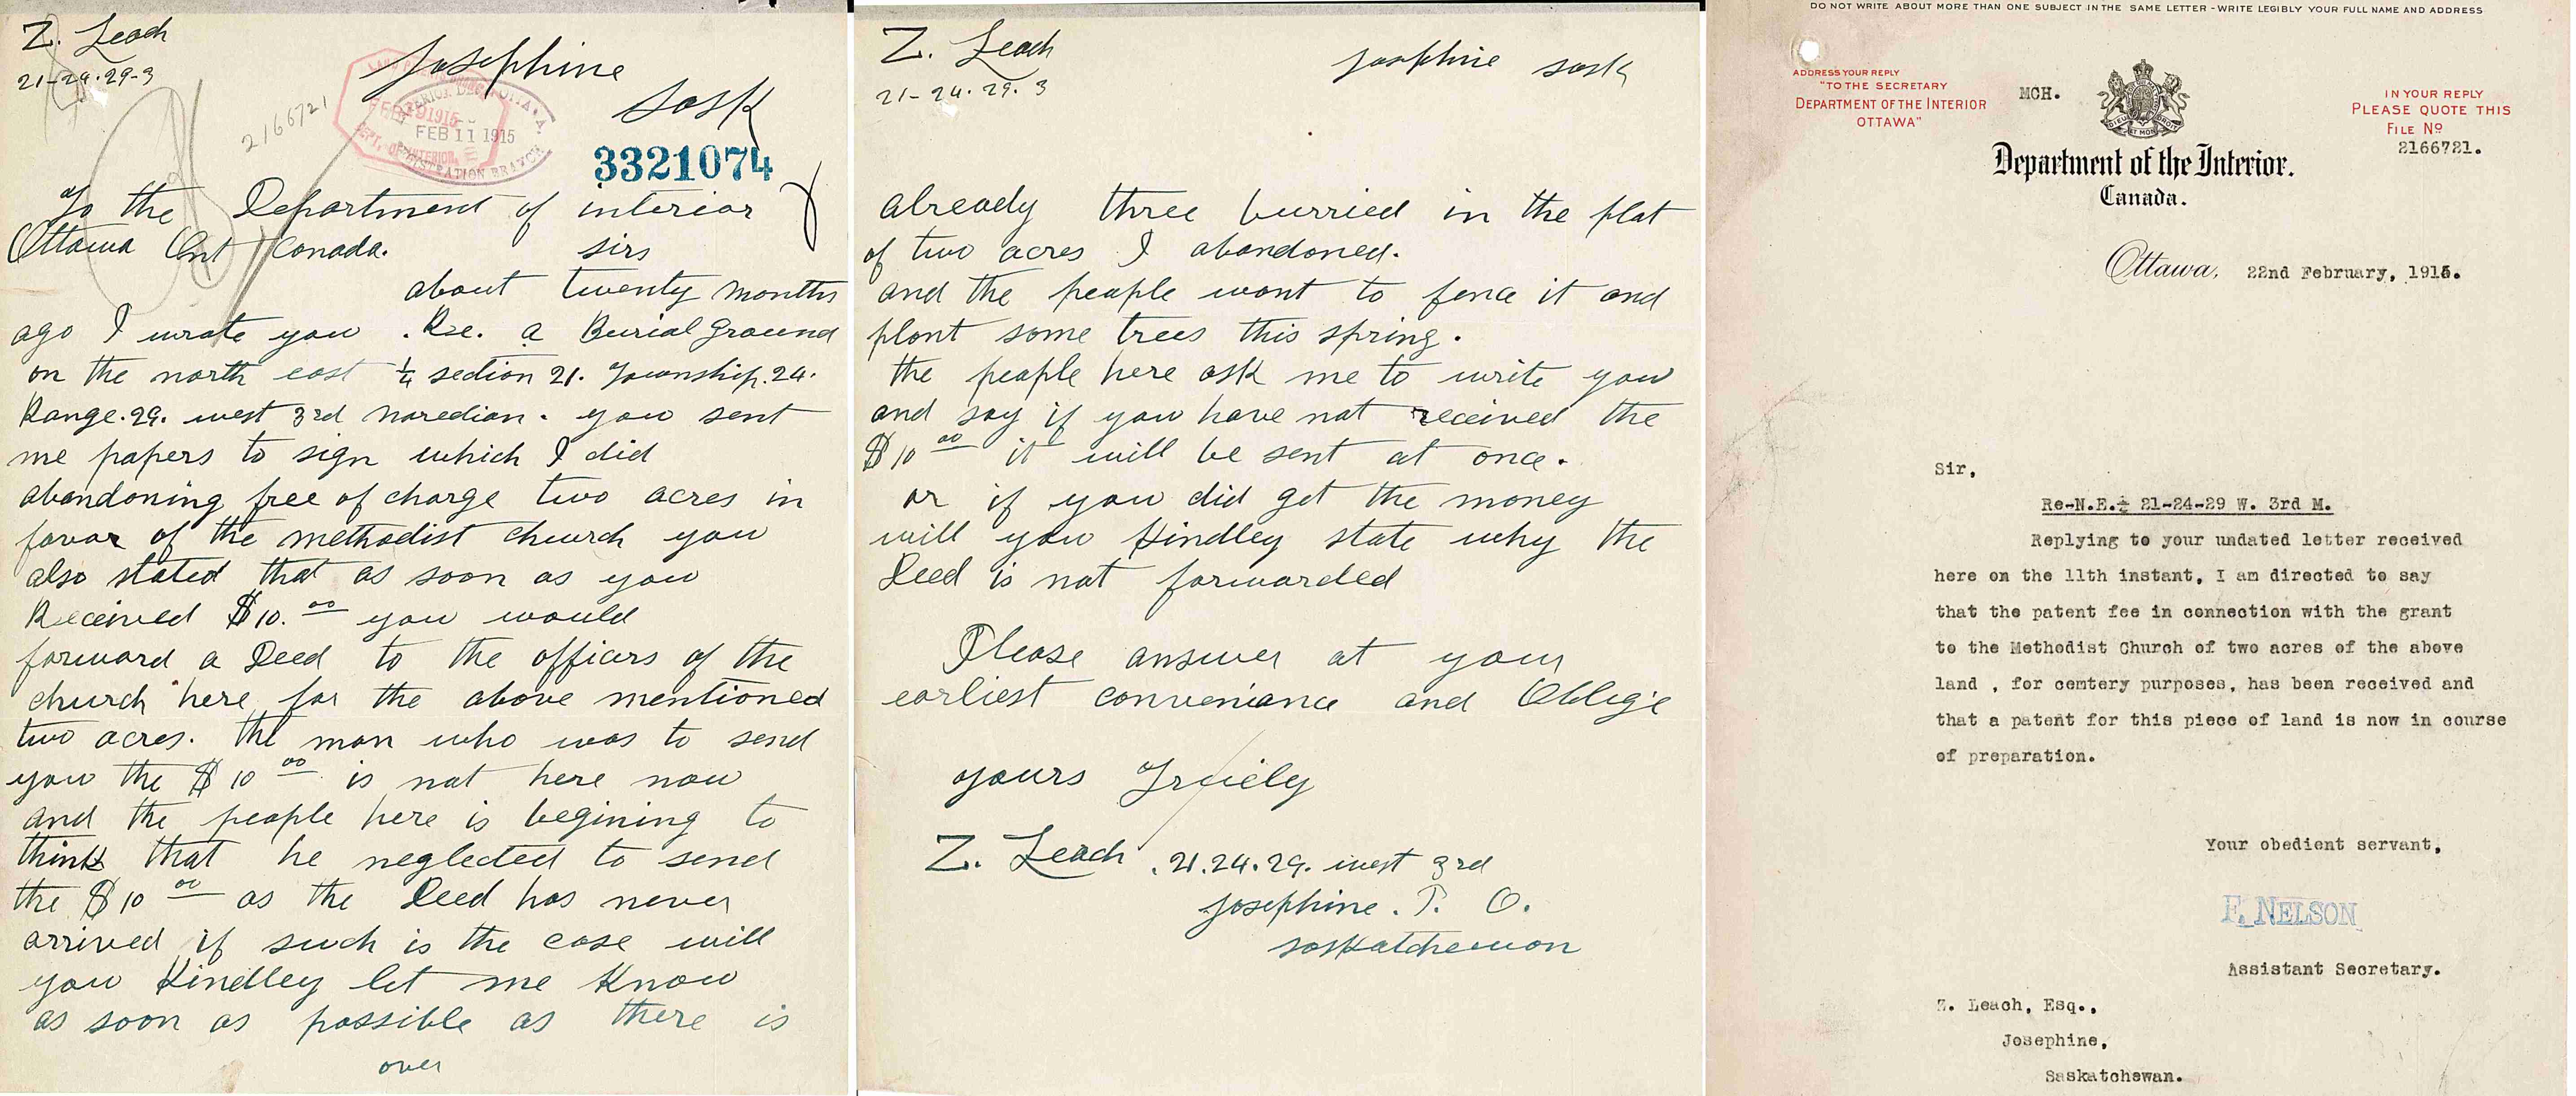 Z. Leach
21-24.29-3
Josephine
Sask
2166721
FEB 11 1915
3321074
To the Department of interior
Ottawa Ont Canada. sirs
about twenty months
ago I wrote you . Re. a Burial Ground
on the north east 1/4 section 21. Township.24.
Range.29. west 3rd Meredian. you sent
me papers to sign which I did
abandoning free of charge two acres in
favor of the methodist church you
also stated that as soon as you
Received $10.00 you would
forward a Deed to the officers of the
church here for the above mentioned
two acres. the man who was to send
you the $10 00 is not here now
and the people here is begining to
think that he neglected to send
the $10 00 as the Deed has never
arrived if such is the case will
you Kindley let me know
as soon as possible as there is
over
Z. Leach
21-24.29.3
Josephine Sask
already three burried in the plat
of two acres I abandoned.
and the people want to fence it and
plant some trees this spring.
the people here ask me to write you
and say if you have not received the
$10 00 it will be sent at once.
or if you did get the money
will you Kindley state why the
Deed is not forwarded
Please answer at your
earliest conveniance and Oblige
yours Truely
Z. Leach .21.24.29. west 3rd
Josephine. P. O.
saskatchewan
DO NOT WRITE ABOUT MORE THAN ONE SUBJECT IN THE SAME LETTER - WRITE LEGIBLY YOUR FULL NAME AND ADDRESS
ADDRESS YOUR REPLY
"TO THE SECRETARY
DEPARTMENT OF THE INTERIOR
OTTAWA"
MCH.
IN YOUR REPLY
PLEASE QUOTE THIS
FILE No
2166721.
Department of the Interior.
Canada.
Ottawa, 22nd February, 1915.
Sir,
Re-N.E.¼ 21-24-29 W. 3rd M.
Replying to your undated letter received
here on the 11th instant, I am directed to say
that the patent fee in connection with the grant
to the Methodist Church of two acres of the above
land , for cemtery purposes, has been received and
that a patent for this piece of land is now in course
of preparation.
Your obedient servant,
F. NELSON
Assistant Secretary.
Z. Leach, Esq.,
Josephine,
Saskatchewan.